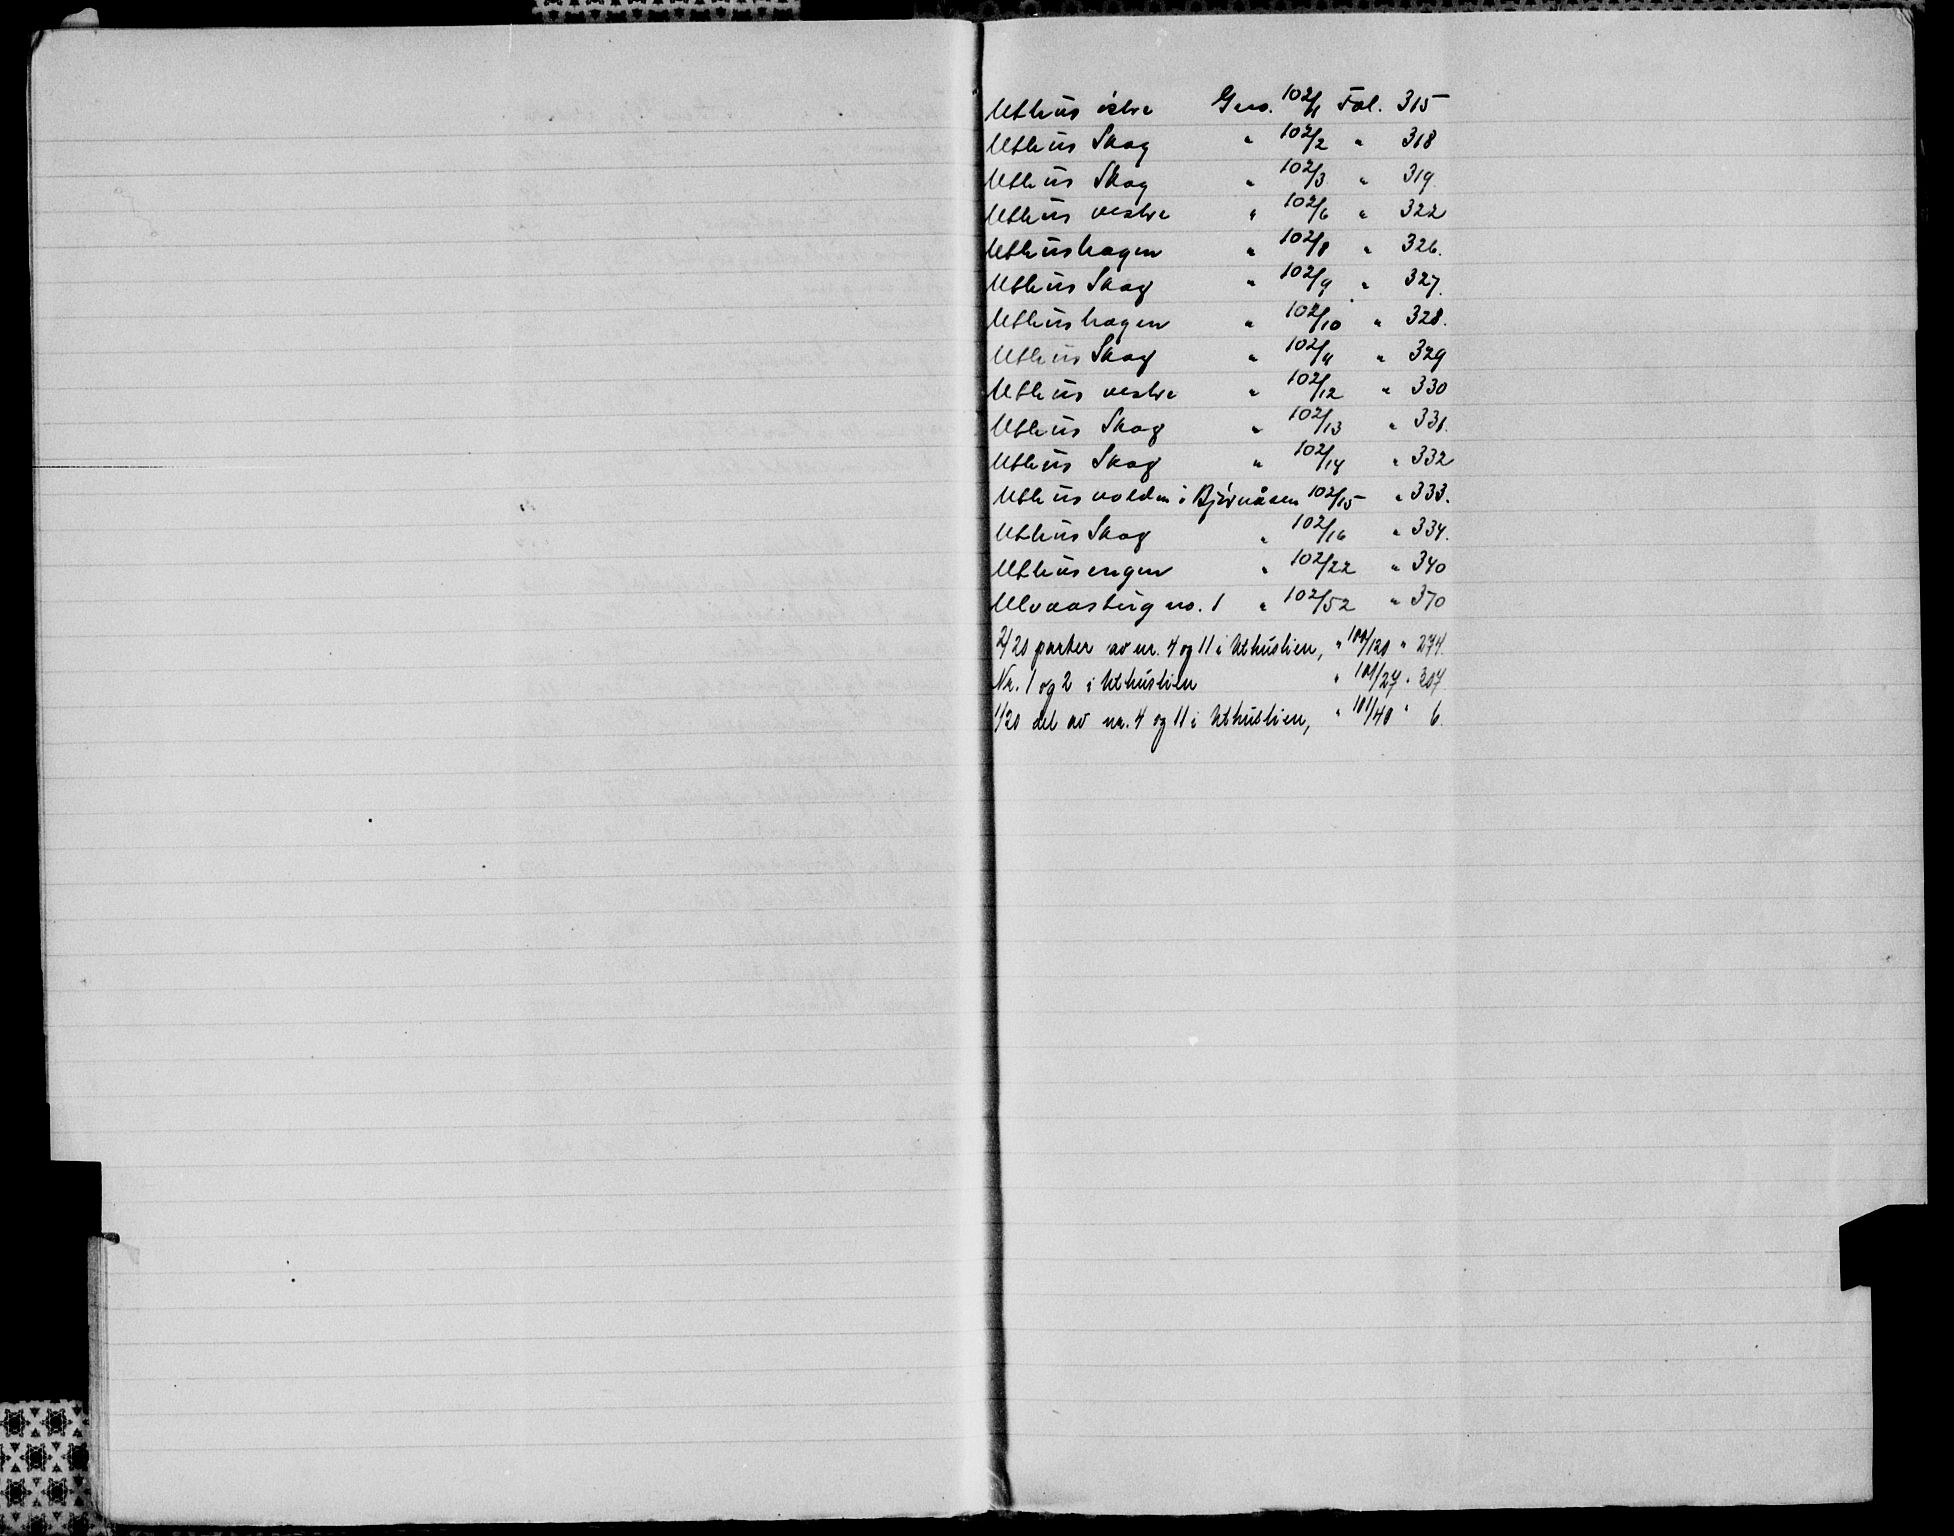 Uthus östre Gno. 102/1 Fol. 315
Uthus Skog " 102/2 " 318
Uthus Skog " 102/3 " 319.
Uthus vestre " 102/6 " 322
Uthushagen " 102/8 " 326.
Uthus Skog " 102/9 " 327.
Uthushagen " 102/10 " 328.
Uthus Skog " 102/11 " 329
Uthus vestre " 102/12 " 330
Uthus Skog " 102/13 " 331.
Uthus Skog " 102/14 " 332
Uthusvolden i Björnåsen 102/15 " 333.
Uthus Skog " 102/16 " 334.
Uthusengen " 102/22 " 340
Ulvaasberg no. 1 " 102/52 " 370
2/20 parter av nr. 4 og 11 i Uthuslien, " 100/120 " 274.
Nr. 1 og 2 i Uthuslien " 101/27 " 307
1/20 del av nr. 4 og 11 i Uthuslien, " 101/40 " 6.